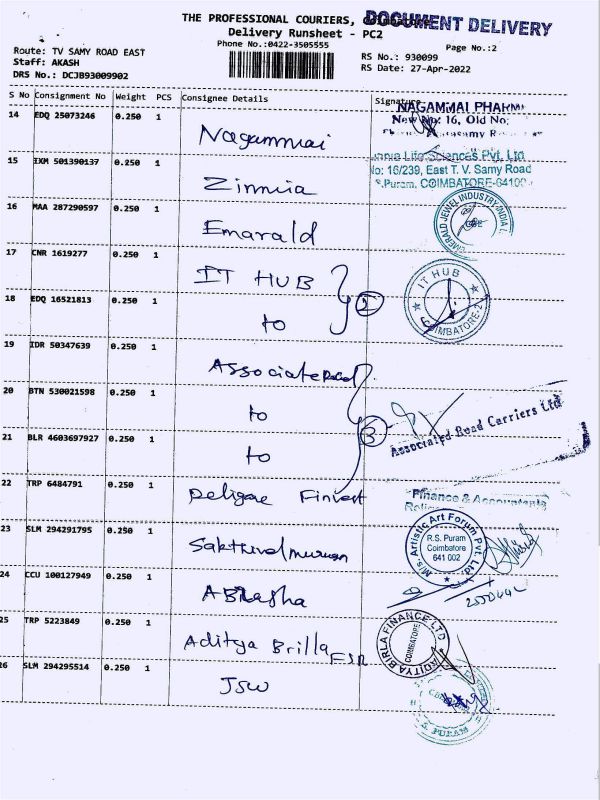 THE PROFESSIONAL COURIERS,
DOCUMENT DELIVERY
Delivery Runsheet - PC2
Phone No.:0422-3505555
Page No.:2
Route: TV SAMY ROAD EAST
Staff: AKASH
DRS No.: DCJB93009902
RS No.: 930099
RS Date: 27-Apr-2022
S No Consignment No Weight PCS Consignee Details Signature
14 EDQ 25073246 0.250 1
Nagammai
NAGAMMAI PHARM
New No: 16, Old No:
15 IXM 501390137 0.250 1
Zinnia
Life Sciences Pvt. Ltd
No: 16/239, East T. V. Samy Road
S.Puram, COIMBATORE-64100
16 MAA 287290597 0.250 1
Emarald
EMERALD JEWEL INDUSTRY INDIA
17 CNR 1619277 0.250 1
IT HUB
2
IT HUB
COIMBATORE-2
18 EDQ 16521813 0.250 1
to
19 IDR 50347639 0.250 1
Associate Road
20 BTN 530021598 0.250 1
to
3
Associated Road Carriers Ltd
21 BLR 4603697927 0.250 1
to
22 TRP 6484791 0.250 1
Religae Finvest
Finance & Accountants
23 SLM 294291795 0.250 1
Sakthivel murugan
M/s. Artistic Art Forum Pvt. Ltd.
R.S. Puram
Coimbatore
641 002
24 CCU 100127949 0.250 1
25 TRP 5223849 0.250 1
Aditya Brilla
ADITYA BIRLA FINANCE LTD
COIMBATORE
26 SLM 294295514 0.250 1
JSW
S. PURAM